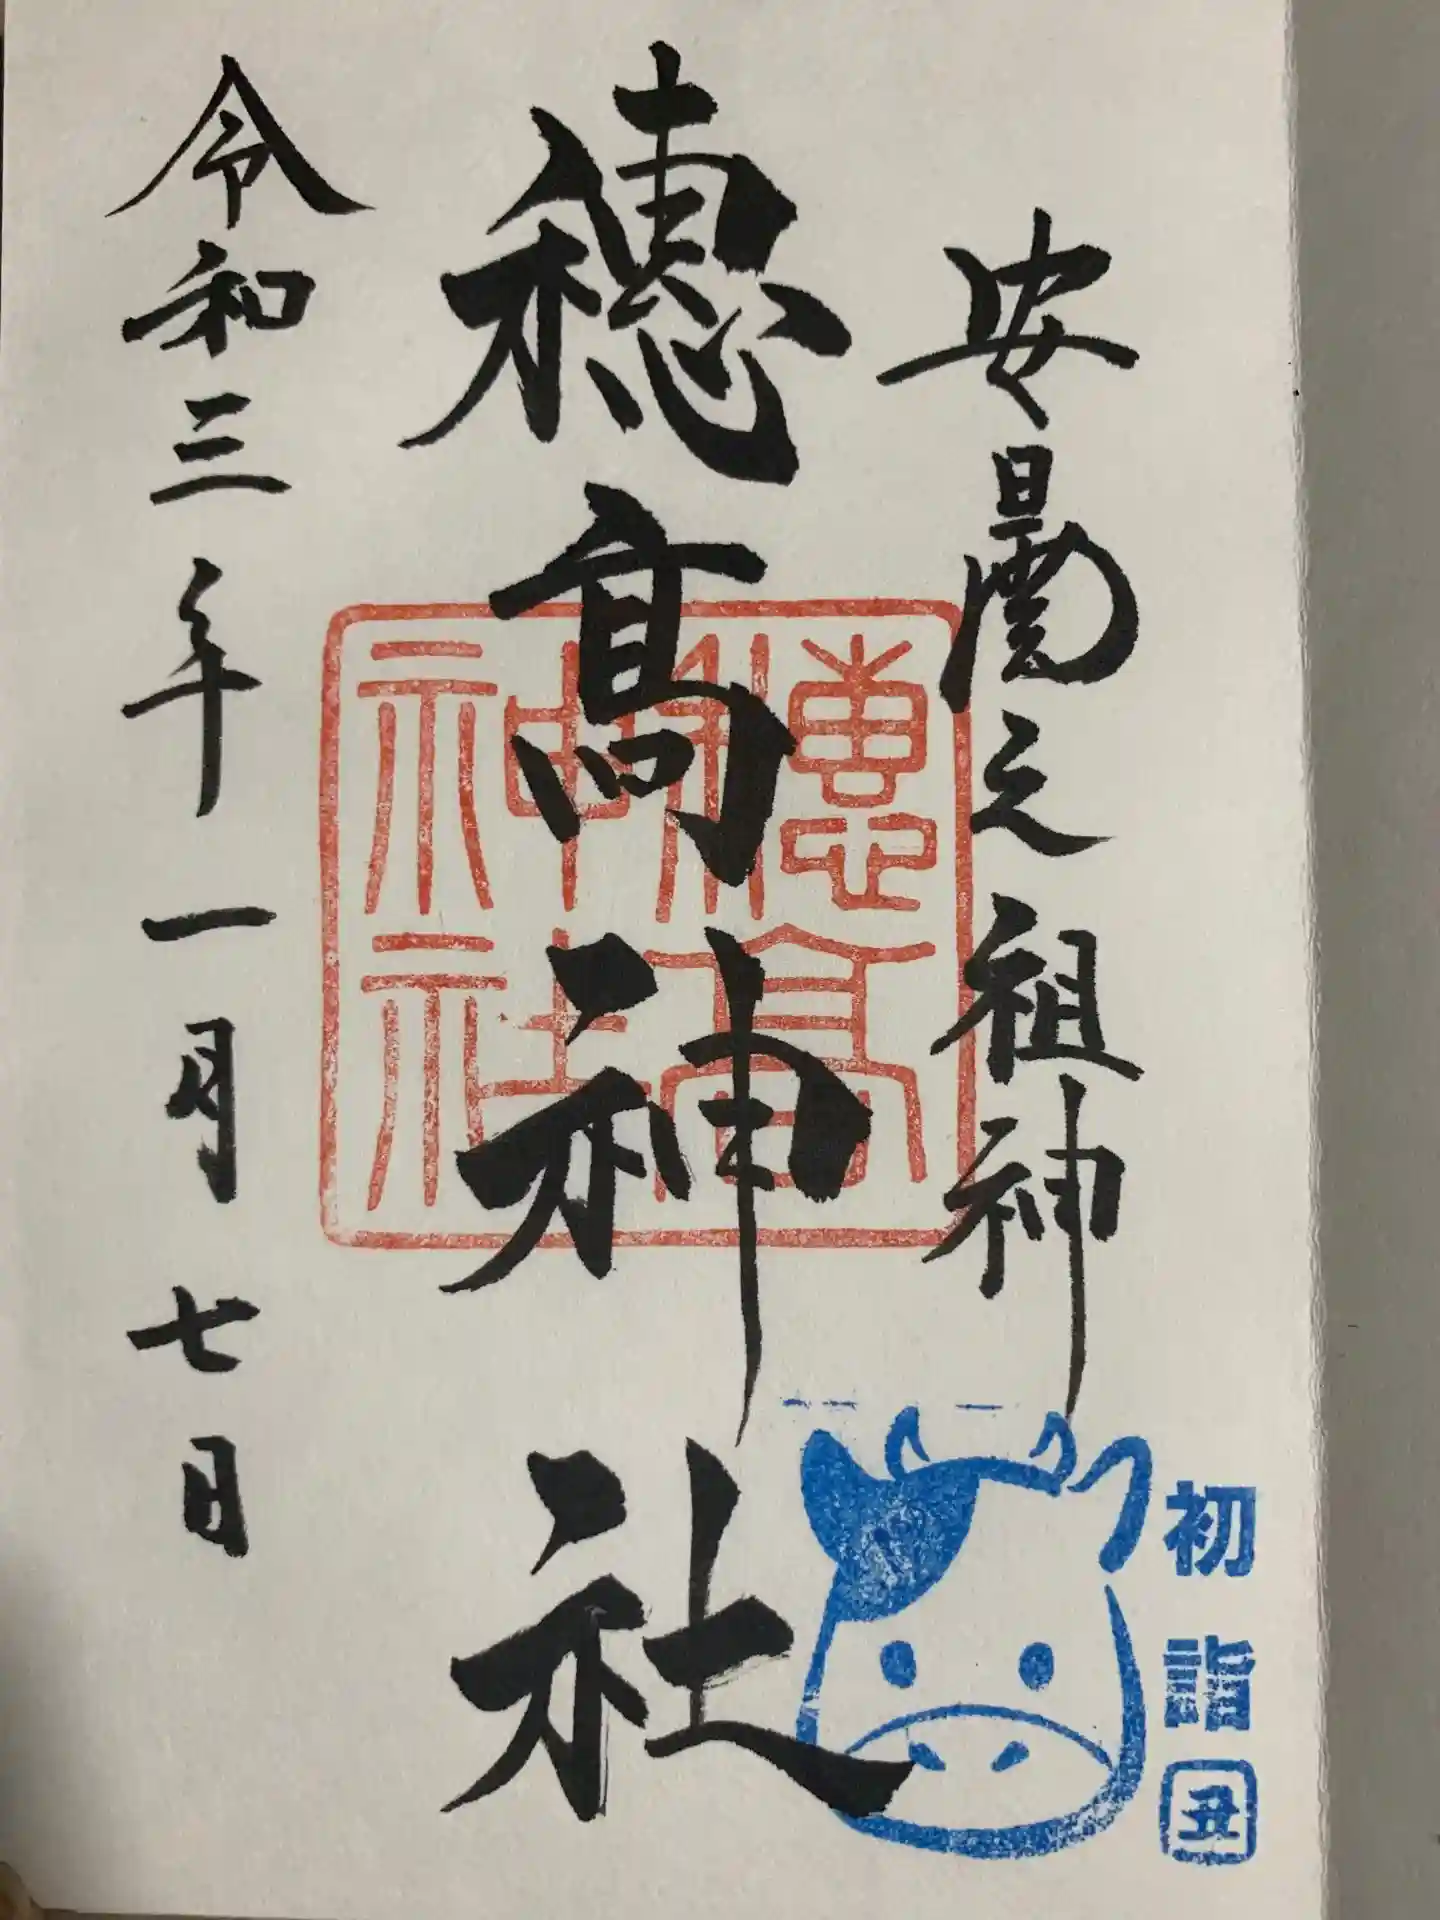 安曇之祖神
穂髙神社
令和三年一月七日
穂高
神社
初詣
丑